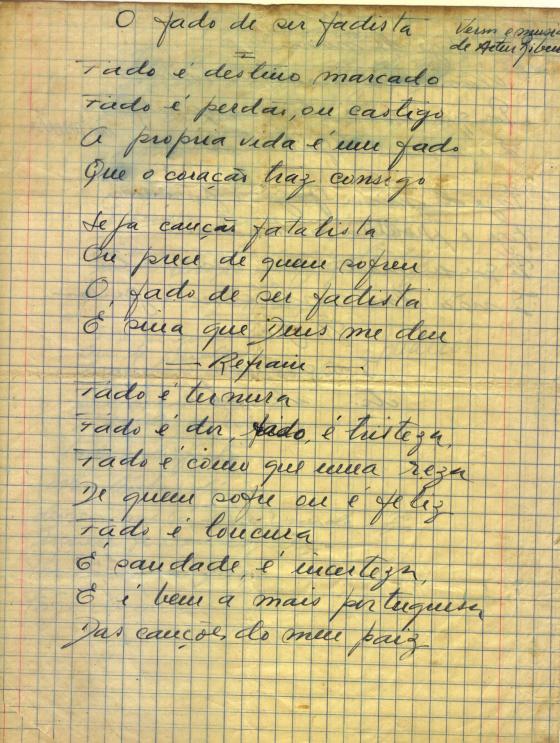 O fado de ser fadista
Versos e musica
de Artur Ribeiro
Fado é destino marcado
Fado é perdão, ou castigo
A propria vida é um fado
Que o coração traz consigo
Seja canção fatalista
Ou prece de quem sofreu
O fado de ser fadista
É sina que Deus me deu
— Refrain —
Fado é ternura
Fado é dor, fado, é tristeza,
Fado é como que uma reza
De quem sofre ou é feliz
Fado é loucura
É saudade, é incerteza,
E é bem a mais portuguesa
Das canções do meu paiz